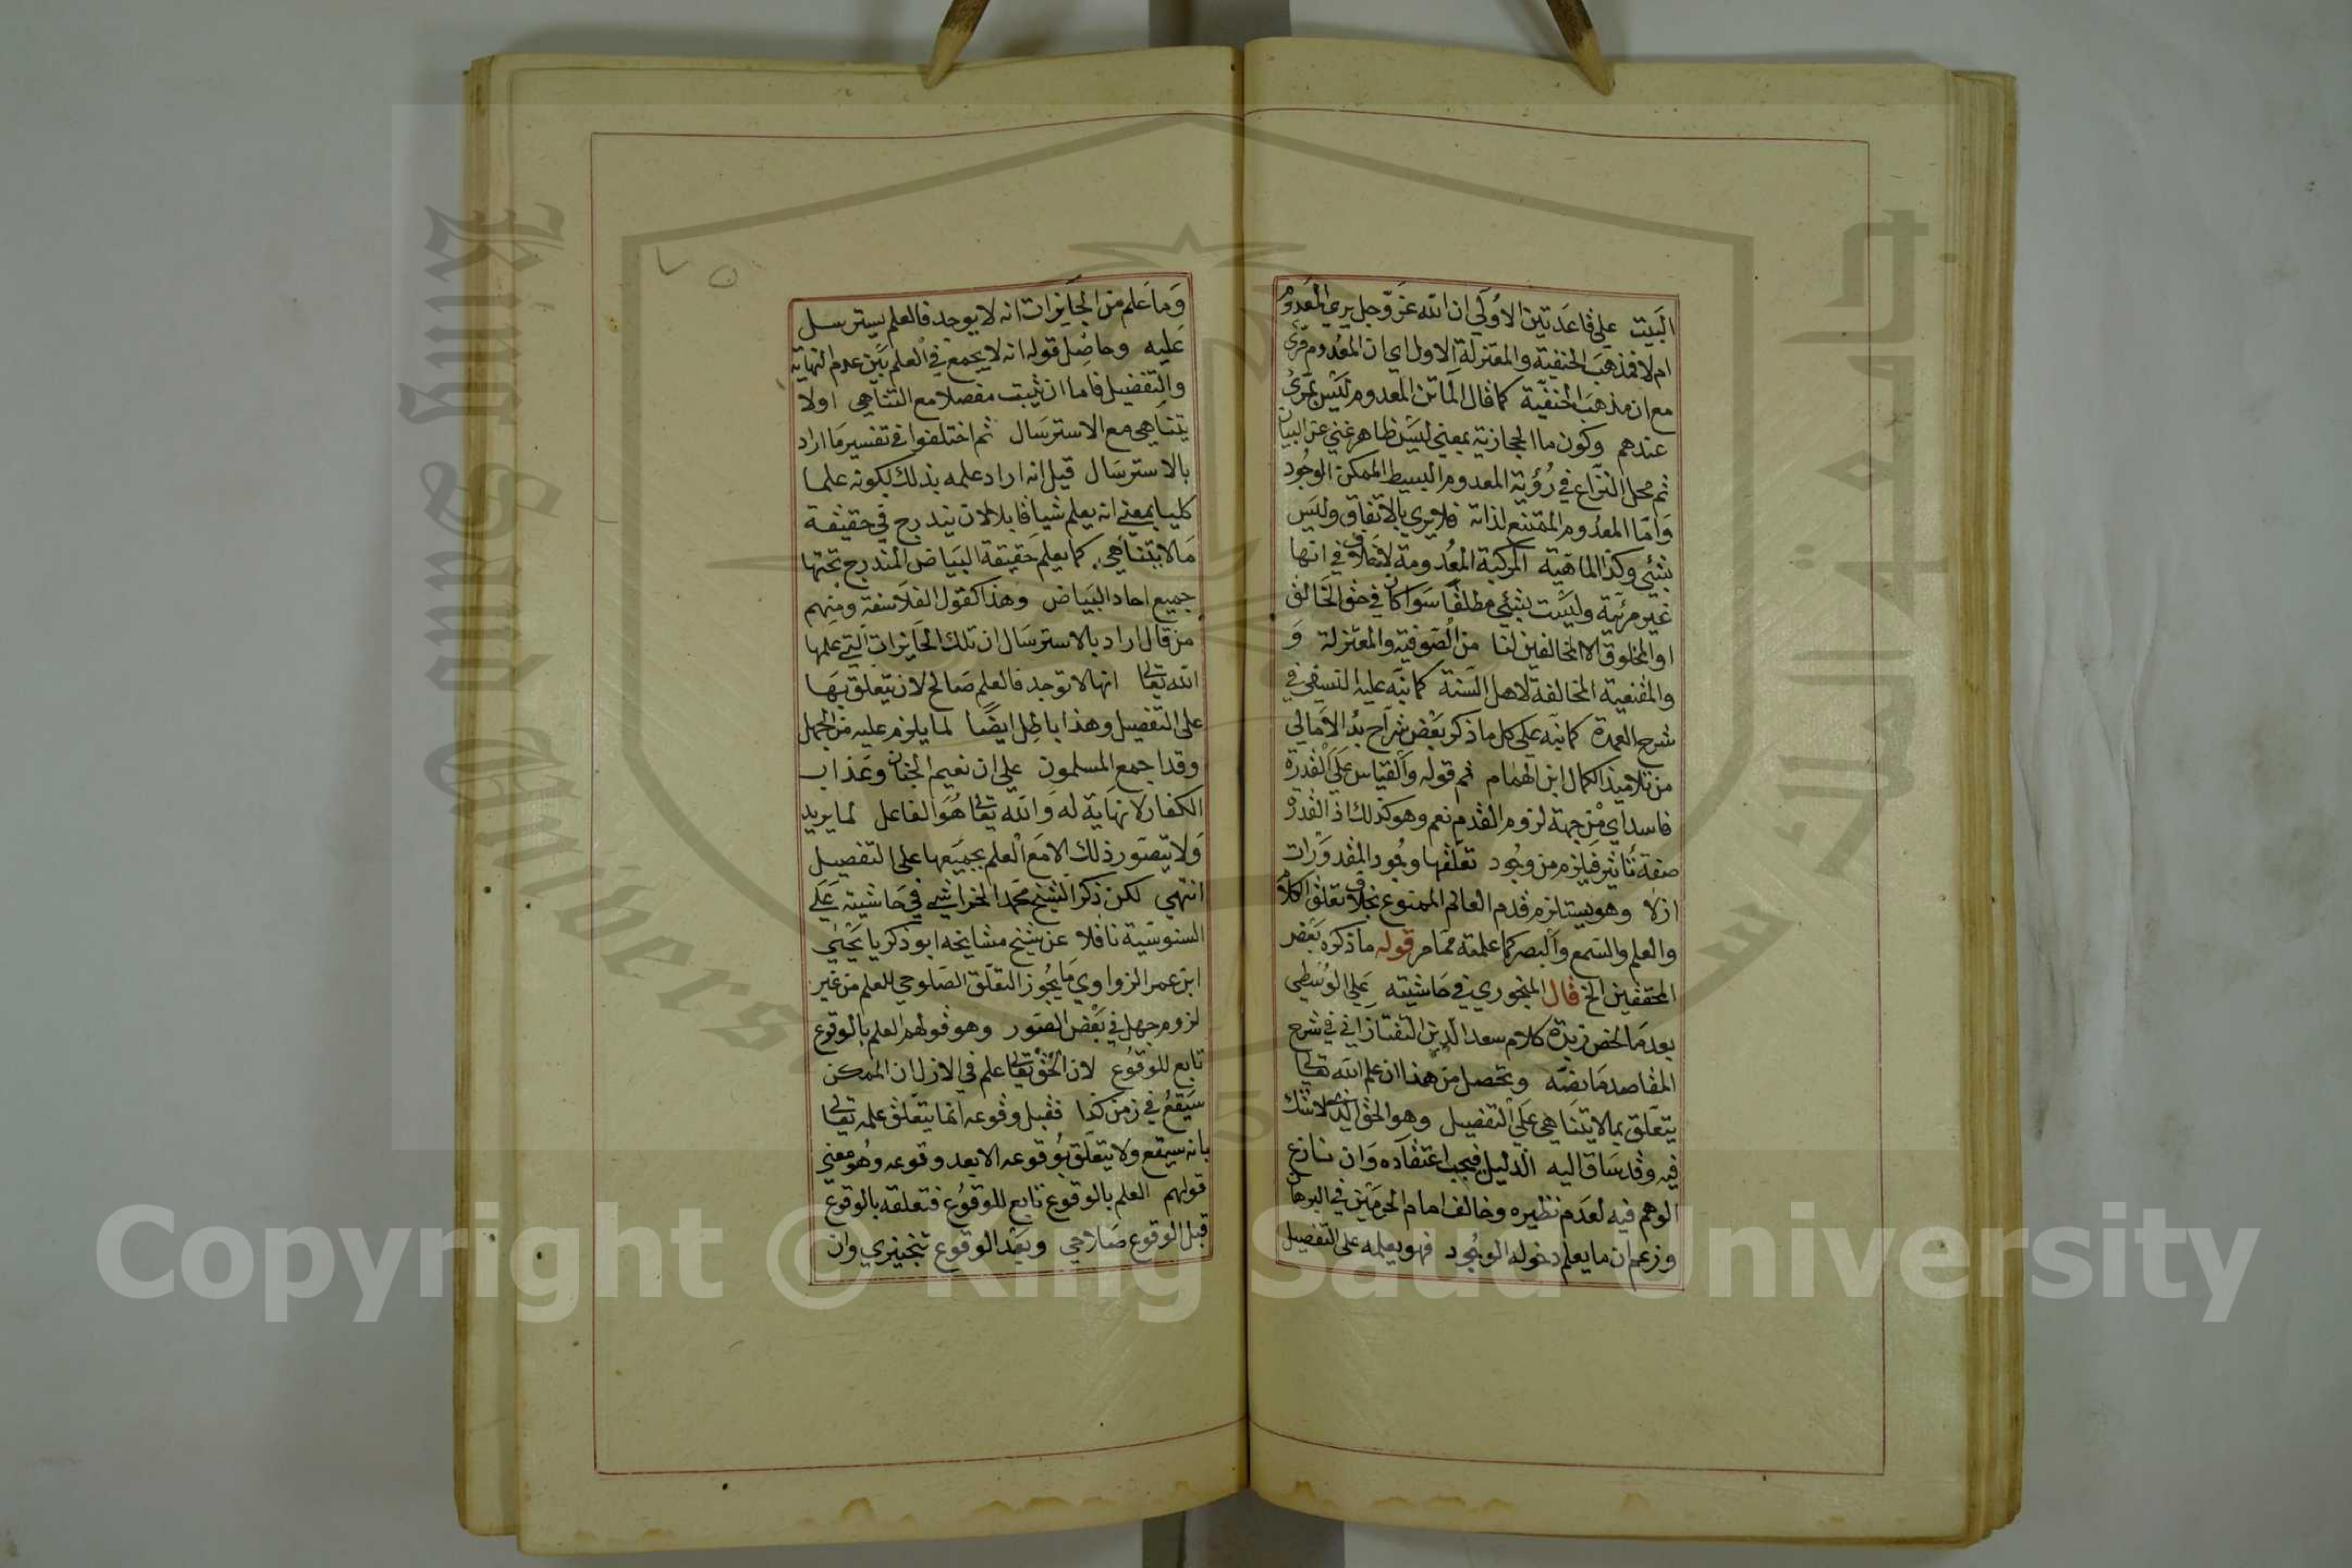 البيت علي قاعدتين الاولي ان الله عز وجل يري المعدوم
ام لا فمذهب الحنفية والمعتزلة الاول اي ان المعدوم مرئ
مع ان مذهب الحنفية كما قال الماتن المعدوم ليس بمرئ
عندهم وكون ما الحجازية بمعني ليس ظاهر غني عن البيان
ثم محل النزاع في رؤية المعدوم البسيط الممكن الوجود
واما المعدوم الممتنع لذاته فلا يري بالاتفاق وليس
بشئي وكذا الماهية المركبة المعدومة لا خلاف في انها
غير مرئية وليست بشئي مطلقا سوا كان في حق الخالق
او المخلوق الا المخالفين لنا من الصوفية والمعتزلة و
والمقنعية المخالفة لاهل السنة كما نبه عليه النسفي في
شرح العمدة كما نبه علي كل ما ذكر بعض شراح بدء الامالي
من تلاميذ الكمال ابن الهمام ثم قوله والقياس علي القدرة
فاسد اي من جهة لزوم القدم نعم وهو كذلك اذ القدرة
صفة تاثير فيلزم من وجود تعلقها وجود المقدورات
ازلا وهو يستلزم قدم العالم الممنوع بخلاف تعلق الكلام
والعلم والسمع والبصر كما علمته مما مر قوله ما ذكره بعض
المحققين الخ قال المنجوري في حاشيته علي الوسطي
بعد ما لخص زبدة كلام سعد الدين التفتازاني في شرح
المقاصد ما نصه وتحصل من هذا ان علم الله تعالي
يتعلق بما لا يتناهي علي التفصيل وهو الحق الذي لا شك
فيه وقد ساق اليه الدليل فيجب اعتقاده وان نازع
الوهم فيه لعدم نظيره وخالف امام الحرمين في البرهان
وزعم ان ما يعلم دخوله الوجود فهو يعلمه علي التفصيل
٧٥
وما علم من الجايزات انه لا يوجد فالعلم يسترسل
عليه وحاصل قوله انه لا يجمع في العلم بين عدم النهاية
والتفضيل فاما ان يثبت مفصلا مع التناهي اولا
يتناهي مع الاسترسال ثم اختلفوا في تفسير ما اراد
بالاسترسال قيل انه اراد علمه بذلك بكونه علما
كليا بمعني انه يعلم شيا قابلا لان يندرج في حقيقة
ما لا يتناهي كما يعلم حقيقة البياض المندرج تحتها
جميع احاد البياض وهذا كقول الفلاسفة ومنهم
من قال اراد بالاسترسال ان تلك الجايزات التي علمها
الله تعالي انها لا توجد فالعلم صالح لان يتعلق بها
علي التفصيل وهذا باطل ايضا لما يلزم عليه من الجهل
وقد اجمع المسلمون علي ان نعيم الجنان وعذاب
الكفار لا نهاية له والله تعالي هو الفاعل لما يريد
ولا يتصور ذلك الا مع العلم بجميعها علي التفصيل
انتهي لكن ذكر الشيخ محمد الخراشي في حاشيته علي
السنوسية ناقلا عن شيخ مشايخه ابو زكريا يحيي
ابن عمر الزواوي ما يجوز التعلق الصلوحي للعلم من غير
لزوم جهل في بعض الصور وهو قولهم العلم بالوقوع
تابع للوقوع لان الحق تعالي علم في الازل ان الممكن
سيقع في زمن كذا فقبل وقوعه انما يتعلق علمه تعالي
بانه سيقع ولا يتعلق بوقوعه الا بعد وقوعه وهو معني
قولهم العلم بالوقوع تابع للوقوع فتعلقه بالوقوع
قبل الوقوع صلاحي وبعد الوقوع تنجيزي وان
King Saud University
جامعة الملك سعود
Copyright © King Saud University